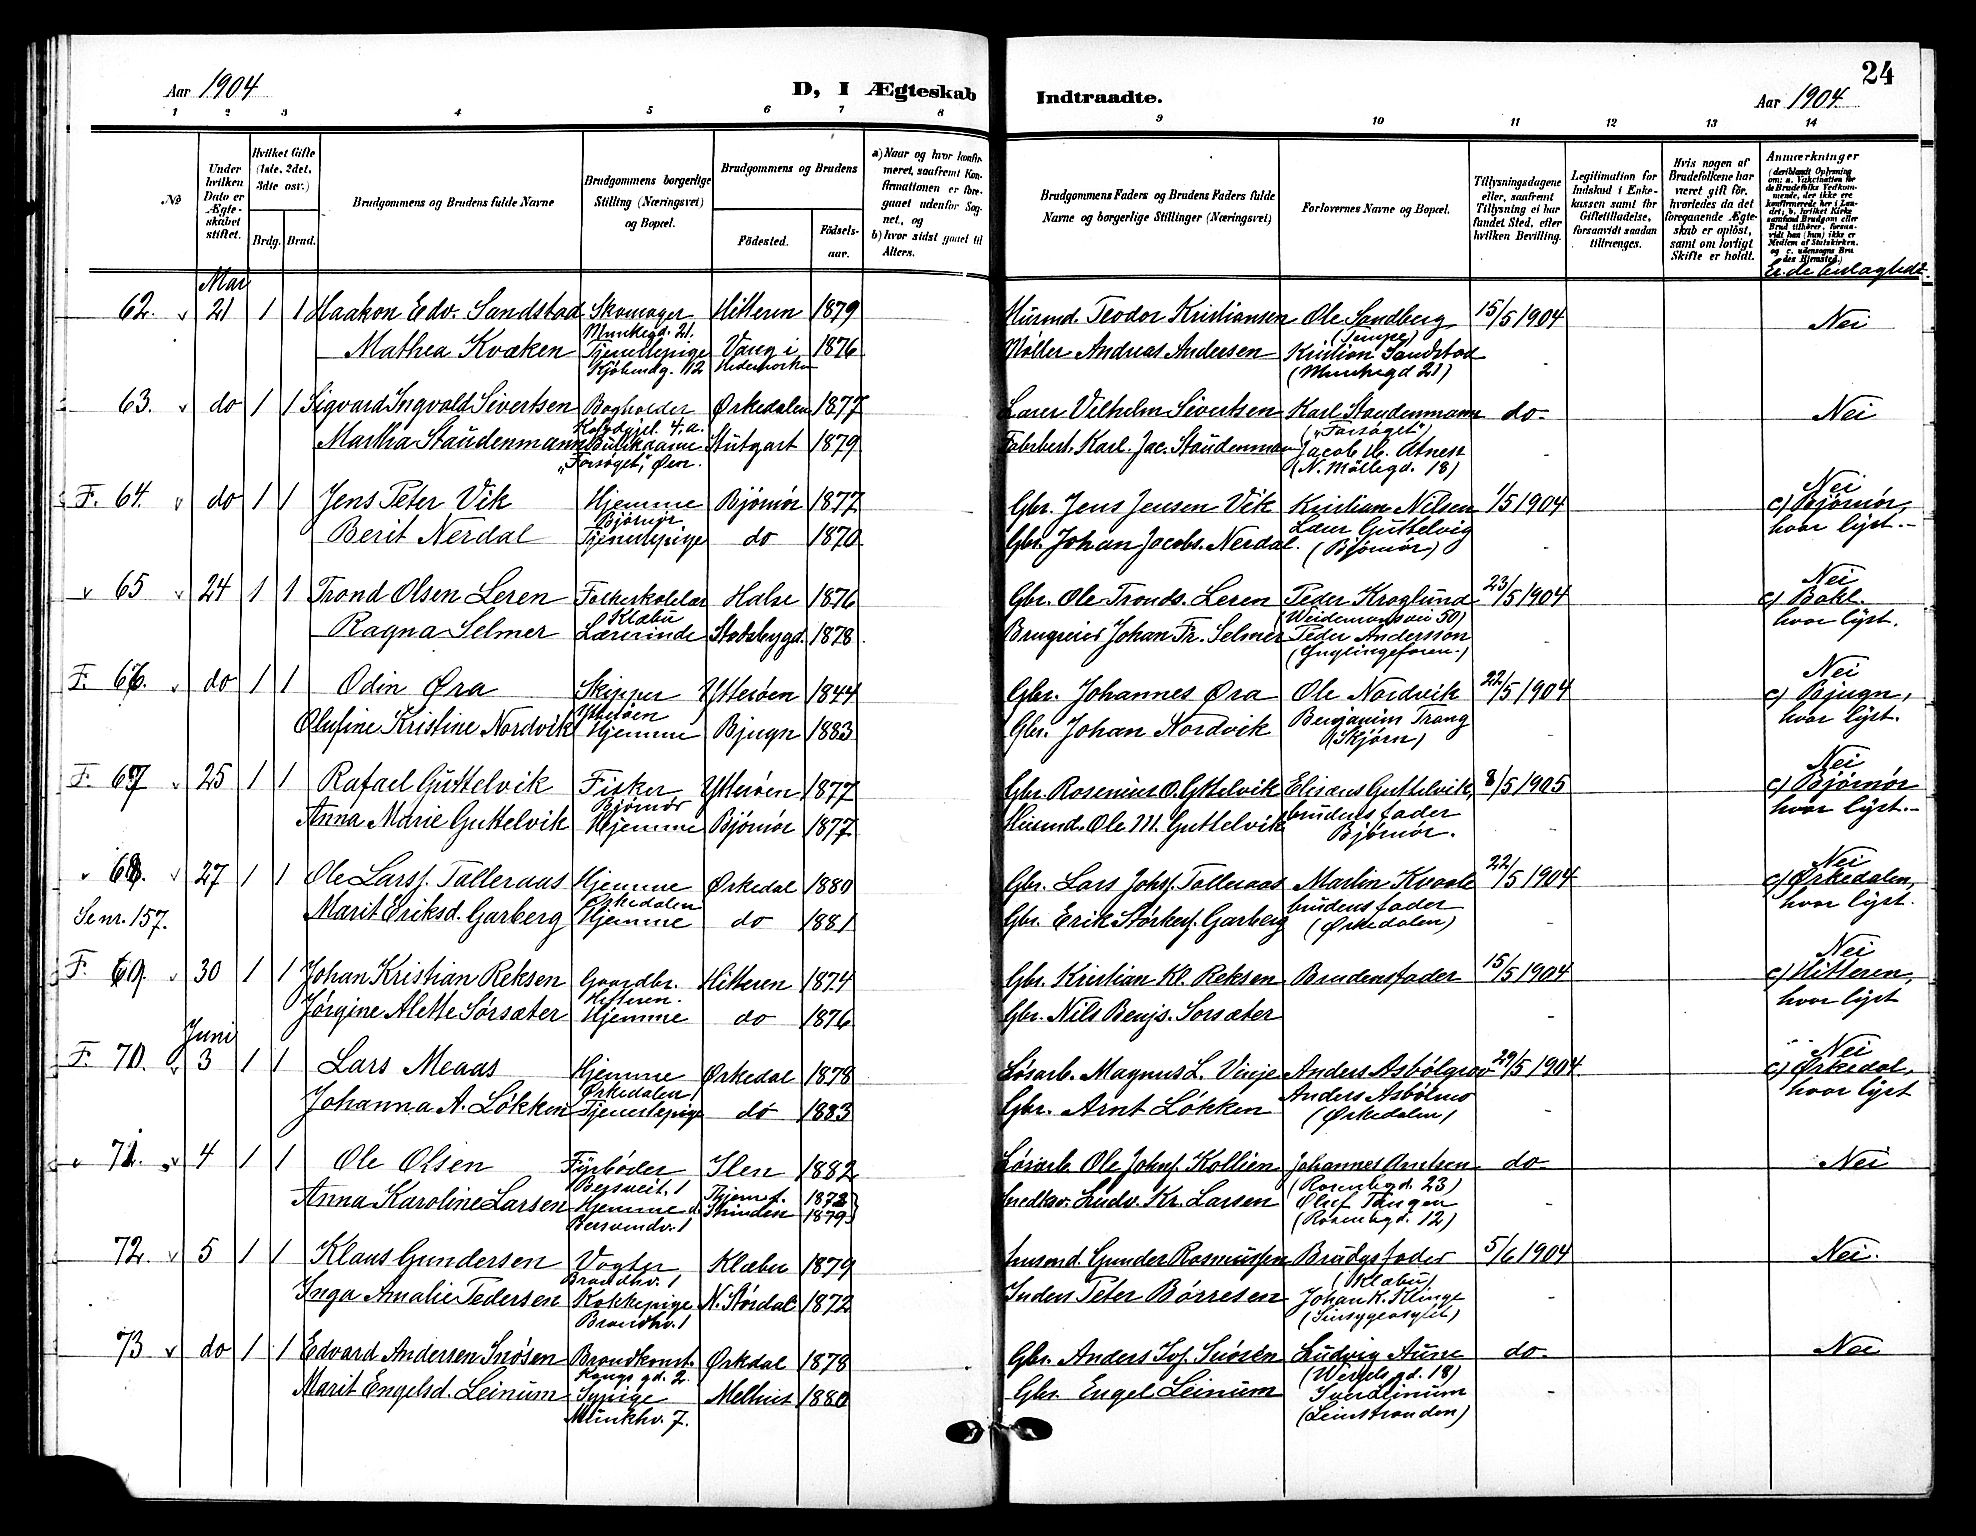 24
Aar 1904
D, I Ægteskab
Indtraadte.
Aar 1904.
1 2 3 4 5 6 7 8 9 10 11 12 13 14
No
Under hvilken Dato er Ægteskabet stiftet.
Hvilket Gifte (1ste, 2det, 3die osv.)
Brdg. Brud.
Brudgommens og Brudens fulde Navne
Brudgommens borgerlige Stilling (Næringsvei) og Bopæl.
Brudgommens og Brudens
Fødested.
Fødselsaar.
a) Naar og hvor konfirmeret, saafremt Konfirmationen er foregaaet udenfor Sognet, og
b) hvor sidst gaaet til Alters.
Brudgommens Faders og Brudens Faders fulde Navne og borgerlige Stillinger (Næringsvei)
Forlovernes Navne og Bopæl.
Tillysningsdagene eller, saafremt Tillysning ei har fundet Sted, efter hvilken Bevilling.
Legitimation for Indskud i Enkekassen samt for Giftetilladelse, forsaavidt saadan tiltrænges.
Hvis nogen af Brudefolkene har været gift før, hvorledes da det foregaaende Ægteskab er opløst, samt om lovligt Skifte er holdt.
Anmærkninger
(deriblandt Oplysning om: a. Vakcination for de Brudefolks Vedkommende, der ikke ere konfirmerede her i Landet; b. hvilket Kirkesamfund Brudgom eller Brud tilhører, forsaavidt han (hun) ikke er Medlem af Statskirken, og c. udensogns Brudes Hjemsted.)
Er de beslægtede?
Mai
62. v 21 1 1 Haakon Edv. Sandstad Skomager Hitteren 1879 Husmd. Teodor Kristiansen Ole Sandberg 15/5 1904 Nei
Munkegd. 21. (Tempe)
Mathea Kvæken Tjenestepige Vang i 1876 Møller Andreas Andersen Kristian Sandstad -
Kjøbmdg. 12 Hedemarken (Munkegd 21)
63. v do 1 1 Sigvard Ingvald Sivertsen Bogholder Ørkedalen 1877 Lærer Vilhelm Sivertsen Karl Staudenmann do- Nei
("Forsøget")
Martha Staudenmann Butikdame Stutgart 1879 Karl. Jac. Staudenman Jacob M. Atness -
"Forsøget", Øvr. (N. Møllegd. 18)
F. 64. v do 1 1 Jens Peter Vik Hjemme Bjørnør 1877 Gbr. Jens Jensen Vik Kristian Nilsen 1/5 1904 Nei
Bjørnør Lærer Guttelvig c) Bjørnør,
Berit Nerdal Tjenestepige do 1870 Gbr. Johan Jacobs. Nerdal. (Bjørnør) - hvor lyst.-
v 65 v 24 1 1 Trond Olsen Leren Folkeskolelær Halse 1876 Gbr. Ole Tronds. Leren Peder Kroglund 23/5 1904 Nei
Klæbu (Weidemansvei 50) c) Bakl.
Ragna Selmer Lærerinde Stadsbygd. 1878. Brugseier Johan Fr. Selmer Peder Andersson - hvor lyst.
(Ynglingeforen.)
F. 66. v do 1 1 Odin Øra Skipper Ytterøen 1844 Gbr. Johannes Øra Ole Nordvik 22/5 1904 Nei
Ytterøen Benjamin Trang c) Bjugn,
Olufine Kristine Nordvik Hjemme Bjugn 1883 Gbr. Johan Nordvik (Skjørn) - hvor lyst.
F. 67 v 25 1 1 Rafael Guttelvik Fisker Ytterøen 1877 Gbr. Rosenius O. Gttelvik Elisæus Guttelvik, 8/5 1905 Nei
Bjørnør brudens fader c) Bjørnør
Anna Marie Guttelvik Hjemme Bjørnør 1877 Husmd. Ole M. Guttelvik Bjørnør. - hvor lyst.-
v 68. v 27 1 1 Ole Larsf. Talleraas Hjemme Ørkedal 1880 Gbr. Lars Johsf. Talleraas Martin Kvaale 22/5 1904 Nei
Ørkedalen brudens fader c) Ørkedalen,
Se nr. 157. Marit Eriksd. Garberg Hjemme do 1881 Gbr. Erik Størkersf. Garberg (Ørkedalen) - hvor lyst.
F. 69. v 30 1 1 Johan Kristian Reksen Gaardbr. Hitteren 1874 Gbr. Kristian Kl. Reksen Brudens fader 15/5 1904 Nei
Hitteren. c) Hitteren,
Jørgine Alette Sørsæter Hjemme do 1876 Gbr. Nils Benjs. Sorsæter - hvor lyst
Juni
F. 70. v 3 1 1 Lars Meaas Hjemme Ørkedal 1878 Løsarb. Magnus L. Vinje Anders Asbølgrav 29/5 1904 Nei
Ørkedalen Anders Asbølmo c) Ørkedal,
Johanna A. Løkken Tjenestepige do 1883 Gbr. Arnt Løkken (Ørkedalen) - hvor lyst
71. v 4 1 1 Ole Olsen Fyrbøder Ilen 1882 Løsarb. Ole Johnsf. Kollien Johannes Amtsen do- Nei
(Rosenbgd. 23)
Anna Karoline Larsen Hjemme d. Strinden 1879 Ludv. Kr. Larsen Oluf Tangen -
Bersvendv. 1 (Rosenbgd. 12)
72. v 5 1 1 Klaus Gundersen Vogter Klæbu 1879 husmd. Gunder Rasmussen Brudgs fader 5/6 1904 Nei.
Brandhv. 1 (Klæbu)
Inga Amalie Pedersen Kokkepige N. Størdal 1872 Inders Peter Børresen Johan K. Klinge -
Brandhv. 1 (Sinsygeasylet)
73 v do 1 1 Edvard Andersen Snøsen Brandkonst. Ørkdal 1878 Gbr. Anders Snøsen Ludvig Aune do- Nei
Kongs gd. 2. (Wergels gd. 18)
Marit Engelsd. Leinum Sypige Melhus 1880 Gbr. Engel Leinum Sver Leinum -
Munkhv. 7. (Leinstranden)